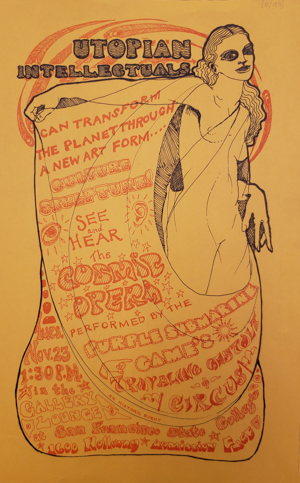 UTOPIAN
INTELLECTUALS
CAN TRANSFORM
THE PLANET THROUGH
A NEW ART FORM....
CULTURE
SCULPTURE!
SEE
and
HEAR
The
COSMIC
OPERA
PERFORMED BY THE
PURPLE SUBMARINE
GAME'S
TRAVELING
CIRCUS
TUES.
NOV. 23
1:30 P.M.
in the
GALLERY
LOUNGE
at San Francisco State College
1600 Holloway